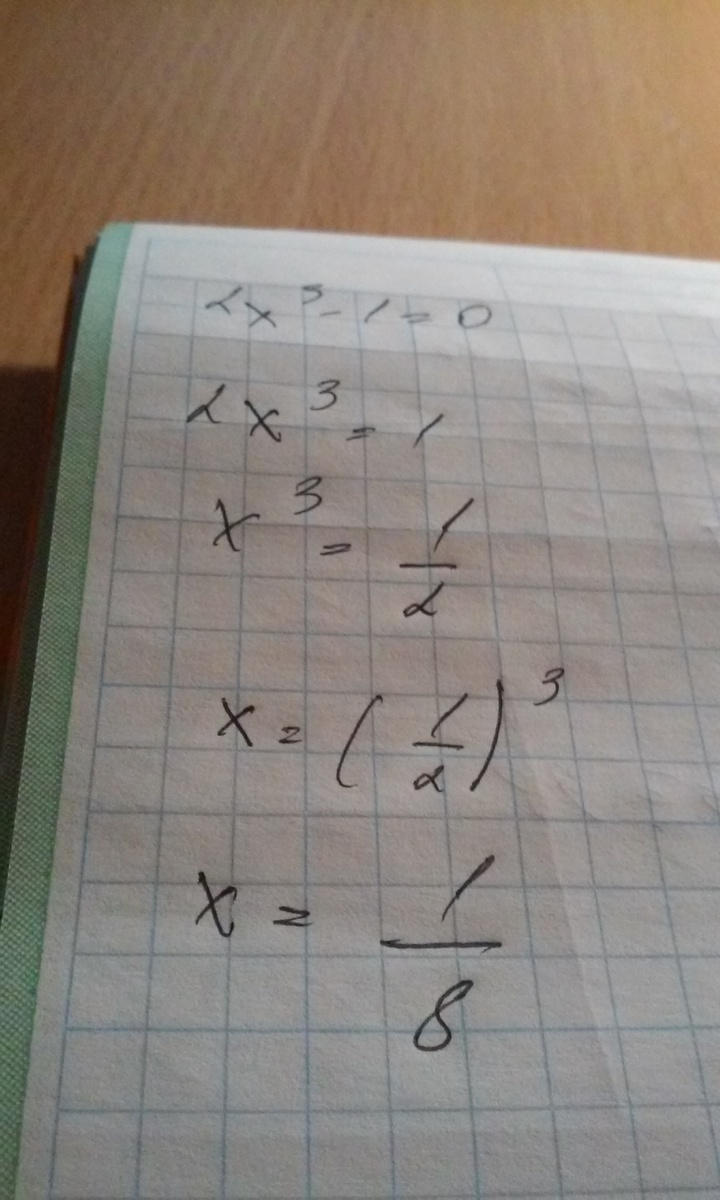 2x³-1=0
2x³=1
x³=1/2
x=(1/2)³
x=1/8